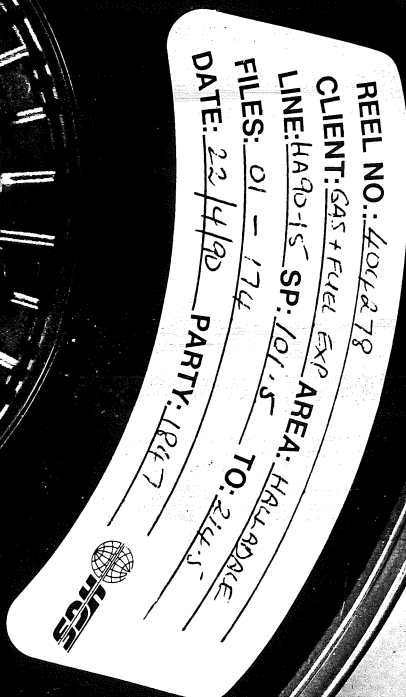 REEL NO.: 404278
CLIENT: GAS + FUEL EXP AREA: HALLADALE
LINE: HA90-15 SP: 101.5 TO: 214.5
FILES: 01 - 174
DATE: 22/4/90 PARTY: 1847
HGS